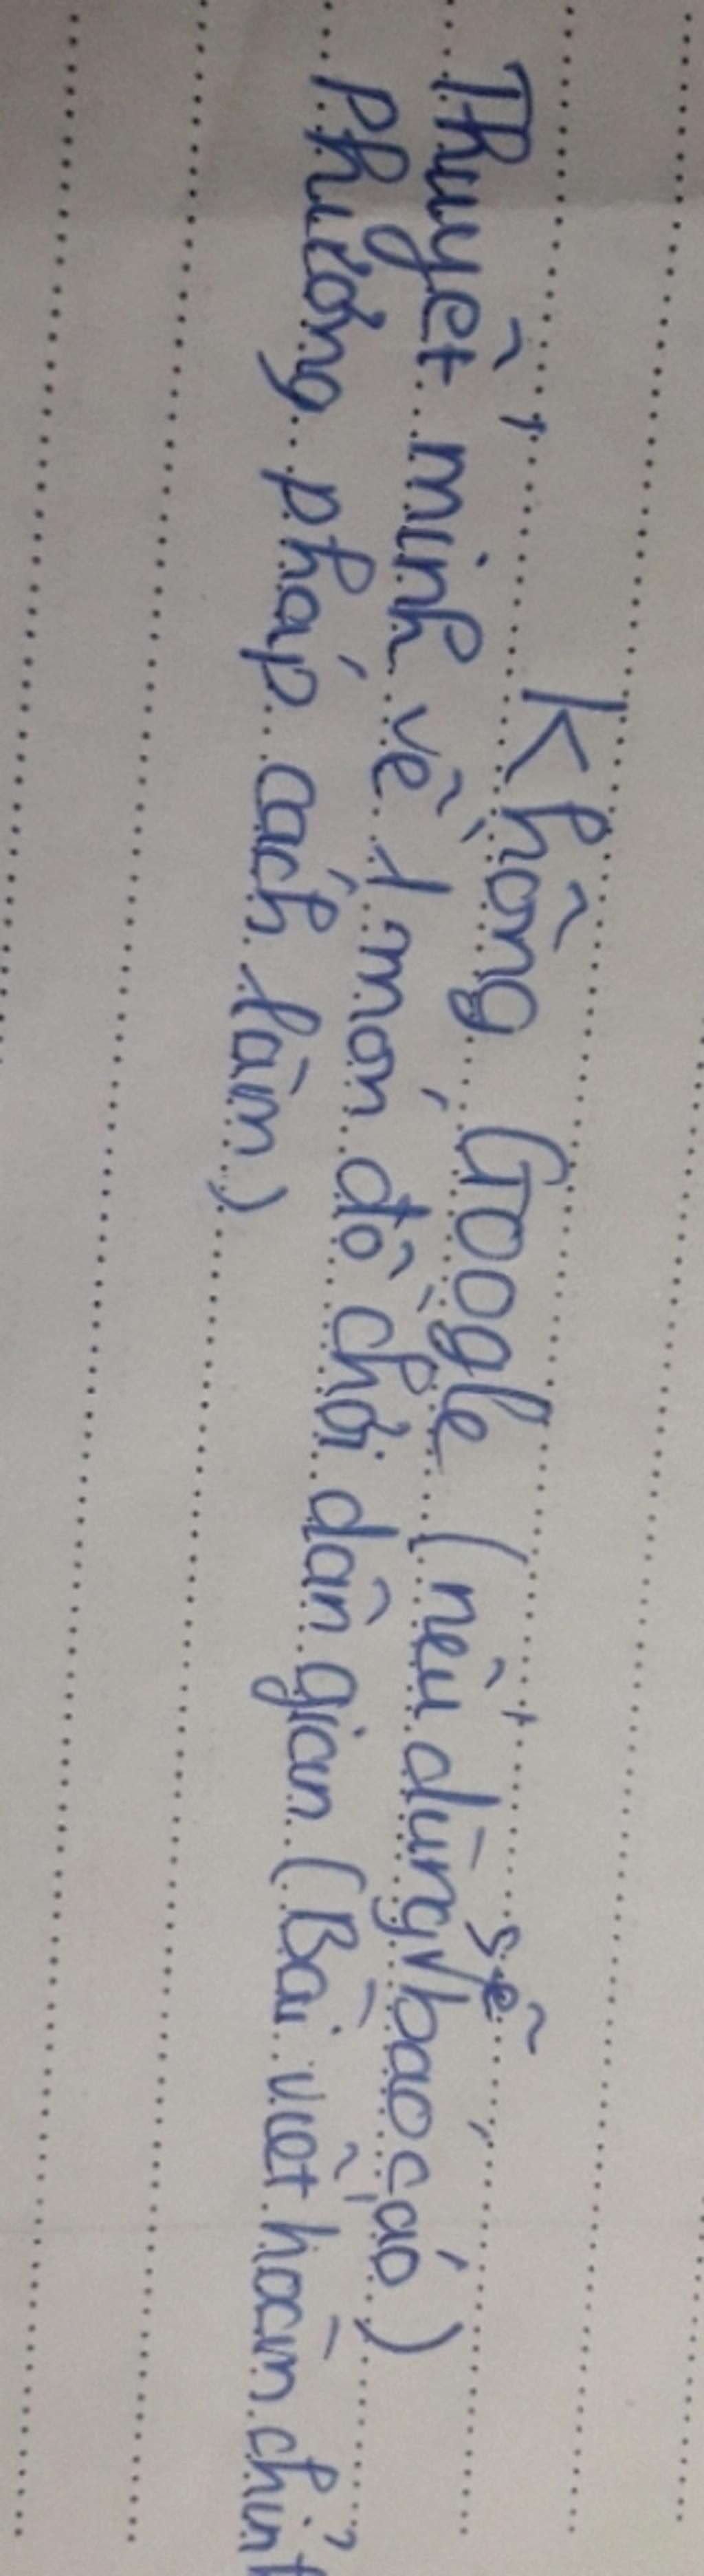 Không Google (nếu dùng sẽ báo cáo)
Thuyết minh về 1 món đồ chơi dân gian (Bài viết hoàn chỉnh
phương pháp cách làm)